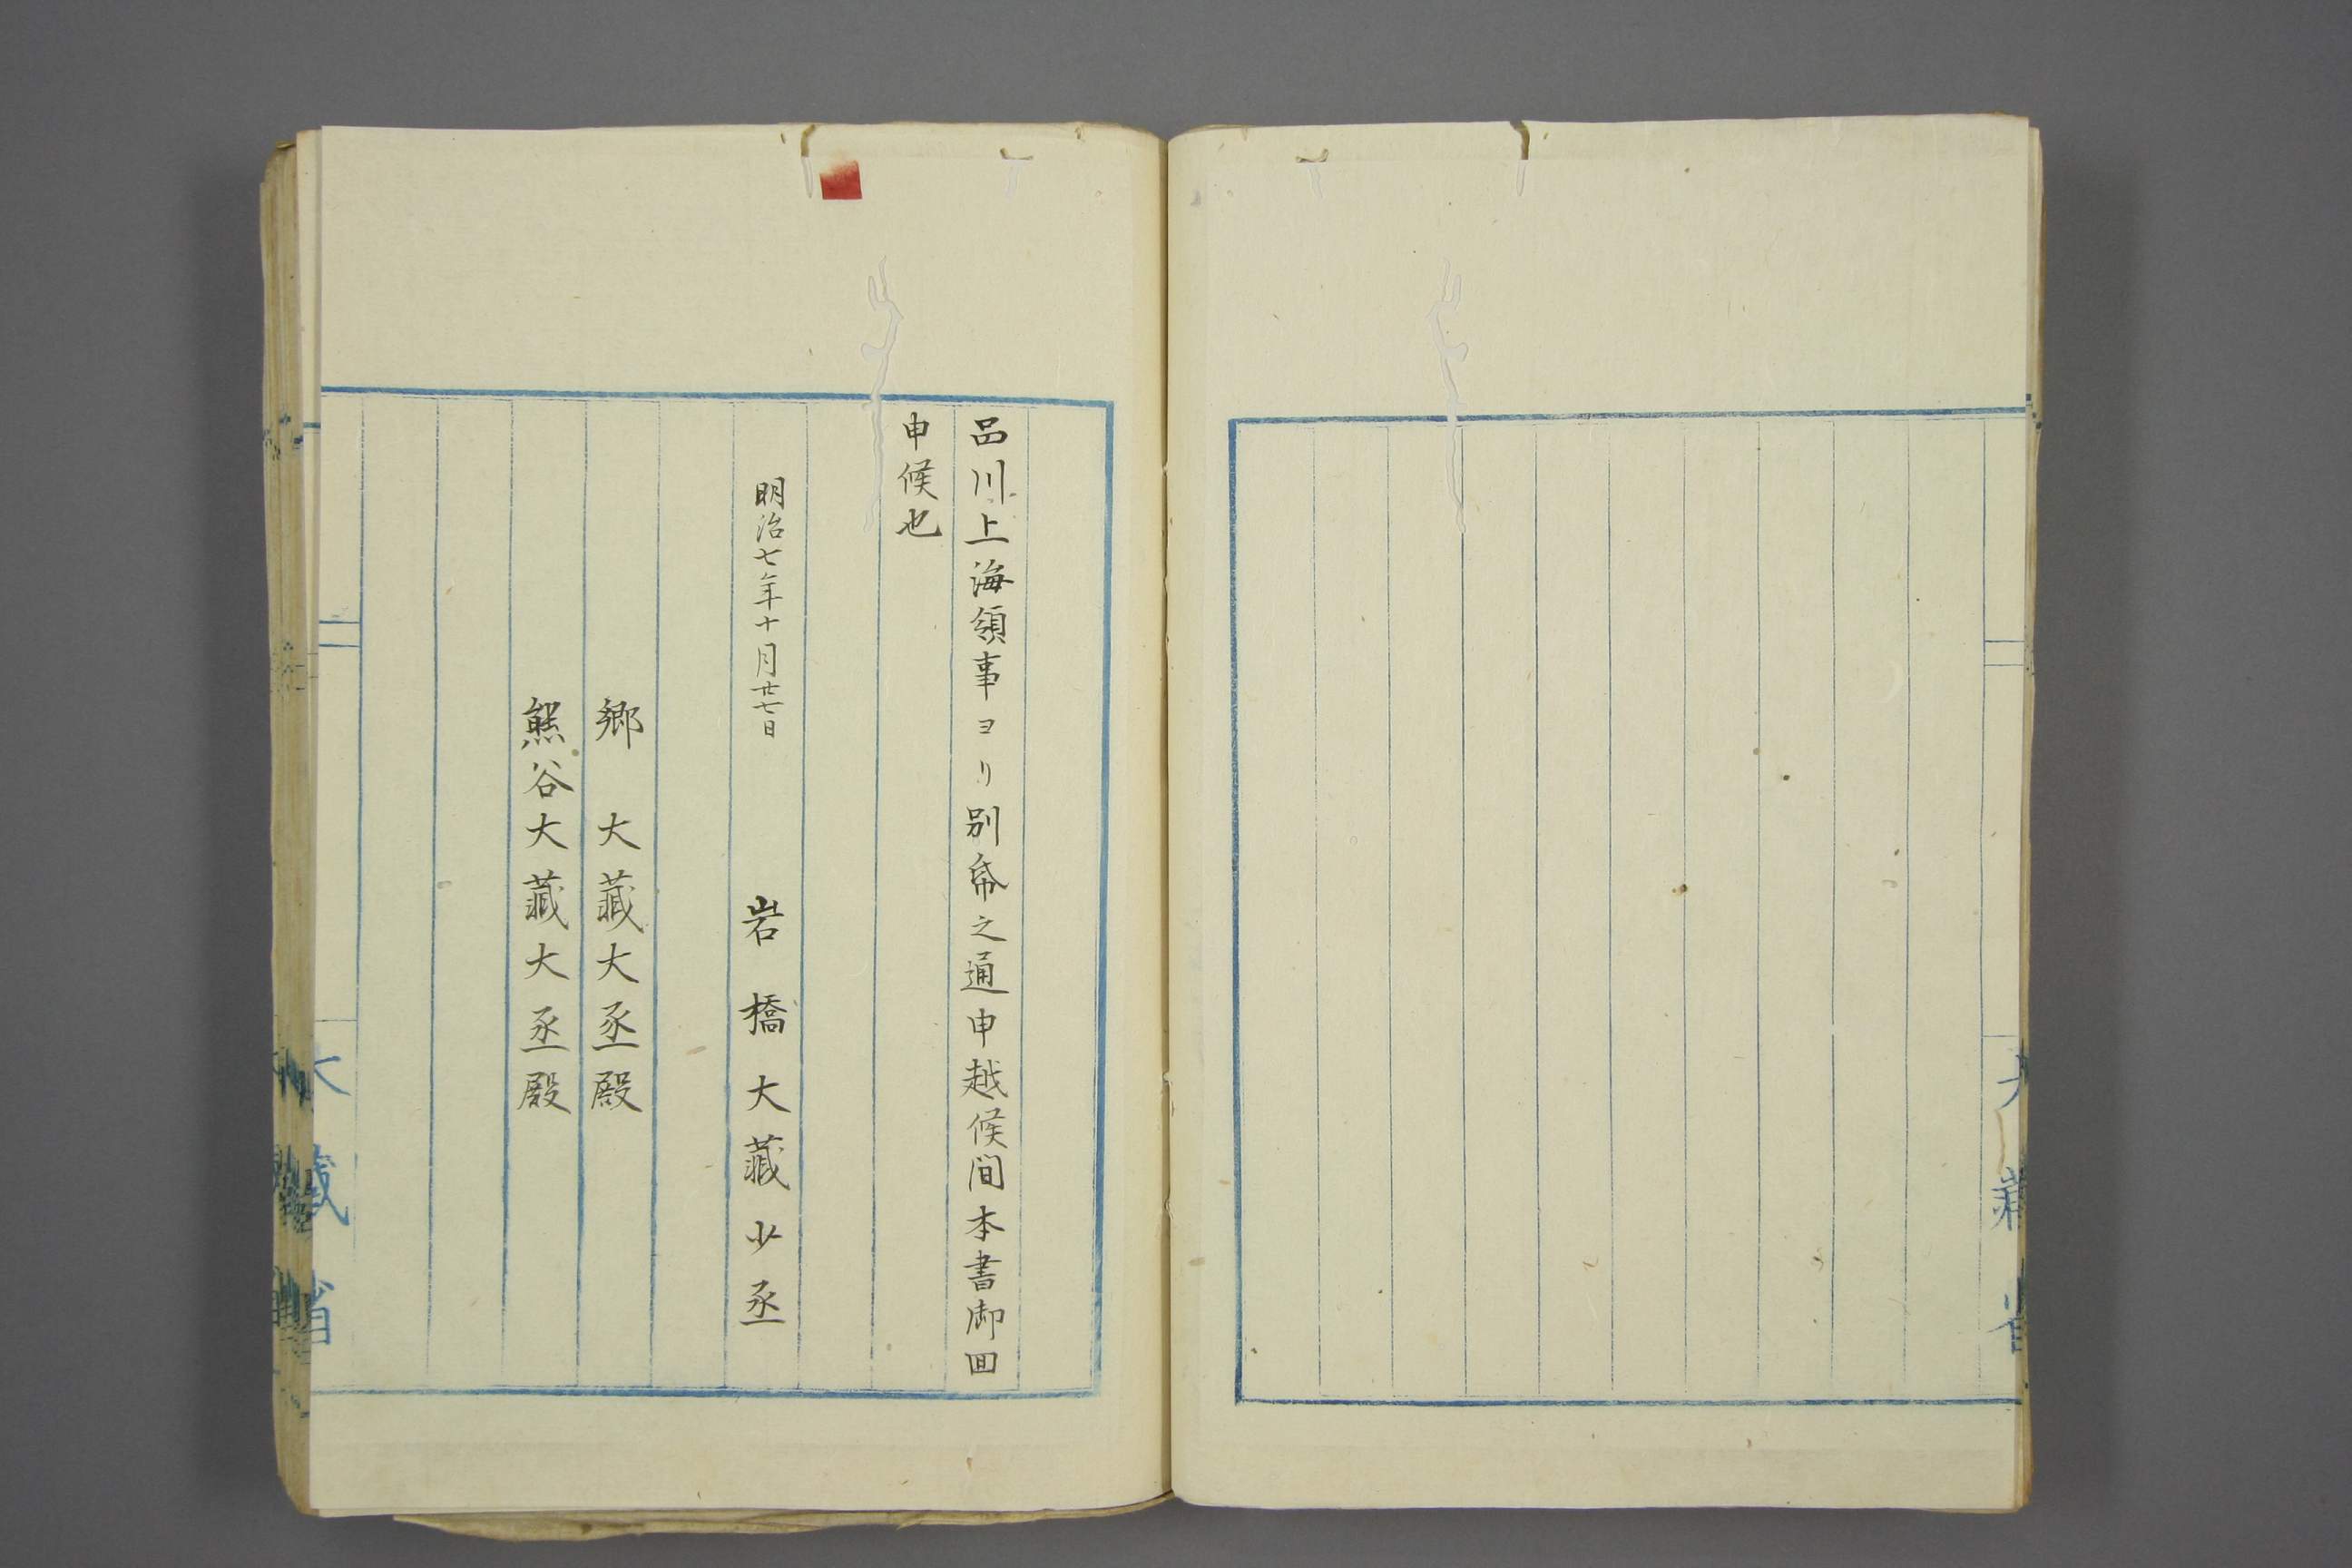 大藏省
品川上海領事ヨリ別帋之通申越候間本書御回
申候也
明治七年十月廿七日 岩橋大藏少丞
郷 大藏大丞殿
熊谷大藏大丞殿
大藏省